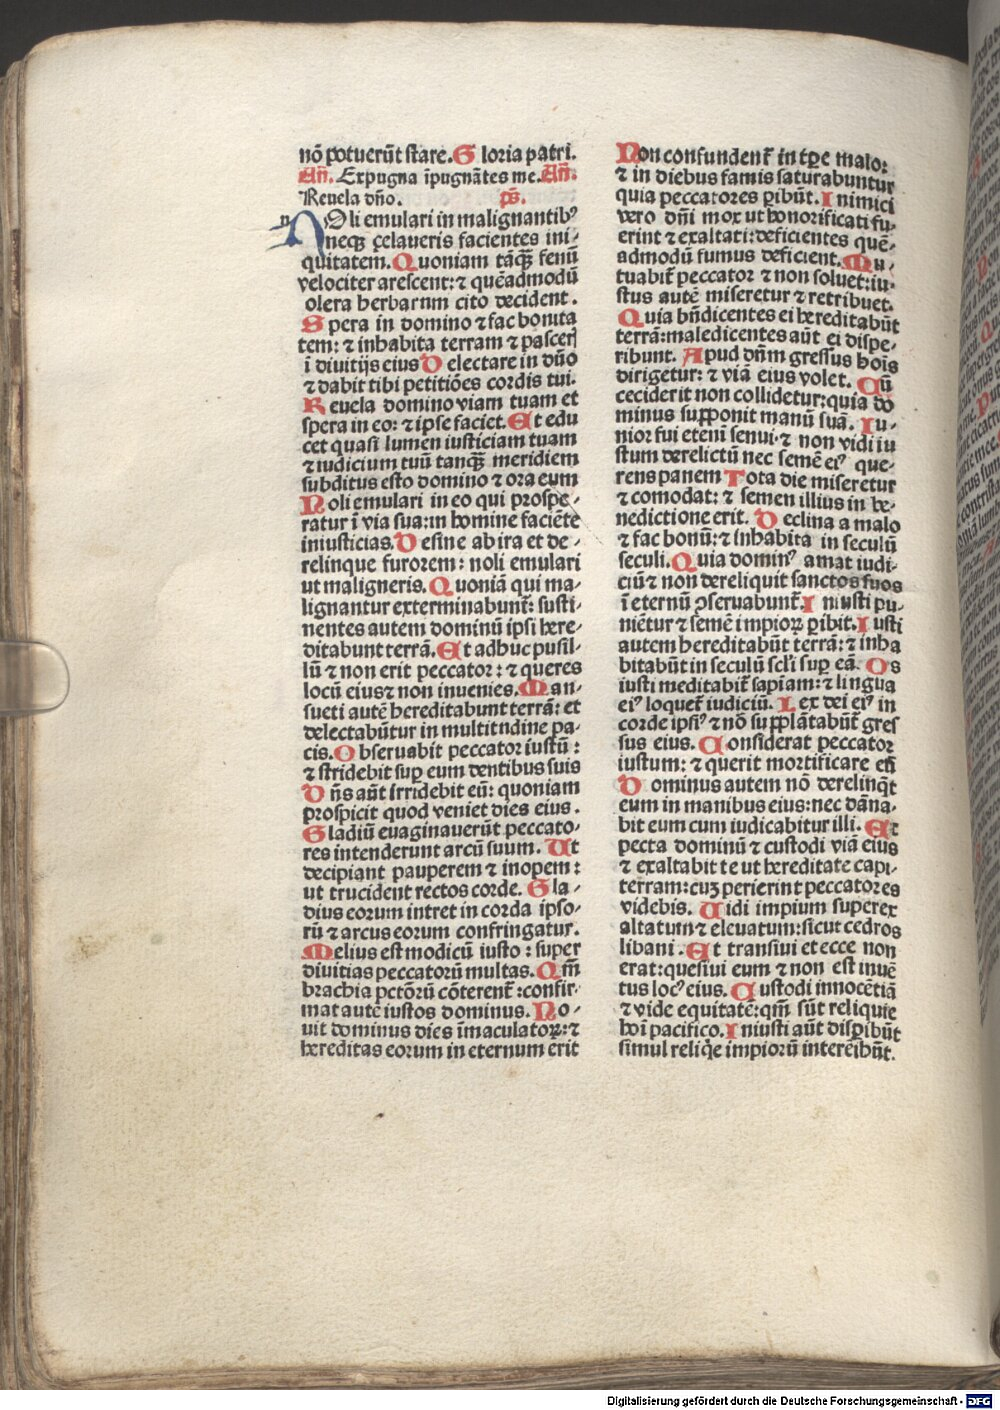 nō potuerūt stare. Gloria patri.
Añ. Expugna īpugnātes me. Añ.
Reuela dn̄o. ps̄.
n
NOli emulari in malignantibꝰ
neqꝫ çelaueris facientes ini-
quitatem. Quoniam tāqꝫ fenū
velociter arescent: ⁊ quēadmodū
olera herbarum cito decident.
Spera in domino ⁊ fac bonita
tem: ⁊ inhabita terram ⁊ pasceris
ī diuitijs eius Delectare in dn̄o
⁊ dabit tibi petitiōes cordis tui.
Reuela domino viam tuam et
spera in eo: ⁊ ipse faciet. Et edu
cet quasi lumen iusticiam tuam
⁊ iudicium tuū tanqꝫ meridiem
subditus esto domino ⁊ ora eum
Noli emulari in eo qui prospe-
ratur ī via sua: in homine faciēte
iniusticias. Desine ab ira et de-
relinque furorem: noli emulari
ut maligneris. Quoniā qui ma-
lignantur exterminabunt̄: susti-
nentes autem dominū ipsi here-
ditabunt terrā. Et adhuc pusil-
lū ⁊ non erit peccator: ⁊ queres
locū eius ⁊ non inuenies. Man-
sueti autē hereditabunt terrā: et
delectabūtur in multitudine pa-
cis. Obseruabit peccator iustū:
⁊ stridebit suꝑ eum dentibus suis
Dn̄s aūt irridebit eū: quoniam
prospicit quod veniet dies eius.
Gladiū euaginauerūt peccato-
res intenderunt arcū suum. Ut
decipiant pauperem ⁊ inopem:
ut trucident rectos corde. Gla-
dius eorum intret in corda ipso-
rū ⁊ arcus eorum confringatur.
Melius est modicū iusto: super
diuitias peccatorū multas. Qm̄
brachia pctōrū cōterent̄: confir-
mat autē iustos dominus. No-
uit dominus dies īmaculatoꝝ: ⁊
hereditas eorum in eternum erit
Non confundent̄ in tpe malo:
⁊ in diebus famis saturabuntur
quia peccatores ꝑibūt. Inimici
vero dn̄i mox ut honorificati fu-
erint ⁊ exaltati: deficientes quē-
admodū fumus deficient. Mu-
tuabit̄ peccator ⁊ non soluet: iu-
stus autē miseretur ⁊ retribuet.
Quia bn̄dicentes ei hereditabūt
terrā: maledicentes aūt ei dispe-
ribunt. Apud dn̄m gressus hoīs
dirigetur: ⁊ viā eius volet. Cū
ceciderit non collidetur: quia do
minus supponit manū suā. Iu-
nior fui etenī senui: ⁊ non vidi iu
stum derelictū nec semē eiꝰ que-
rens panem Tota die miseretur
⁊ comodat: ⁊ semen illius in be-
nedictione erit. Declina a malo
⁊ fac bonū: ⁊ inhabita in seculū
seculi. Quia dominꝰ amat iudi-
ciū ⁊ non dereliquit sanctos suos
ī eternū ꝯseruabunt̄. Iniusti pu-
niētur ⁊ semē impioꝝ ꝑibit. Iusti
autem hereditabūt terrā: ⁊ inha
bitabūt in seculū scl̄i suꝑ eā. Os
iusti meditabit̄ sapiam: ⁊ lingua
eiꝰ loquet̄ iudiciū. Lex dei eiꝰ in
corde ipsiꝰ ⁊ nō supplātabūt̄ gres
sus eius. Considerat peccator
iustum: ⁊ querit mortificare eū
Dominus autem nō derelinq̄t
eum in manibus eius: nec dāna-
bit eum cum iudicabitur illi. Ex
pecta dominū ⁊ custodi viā eius
⁊ exaltabit te ut hereditate capi-
terram: cuꝫ perierint peccatores
videbis. Uidi impium superex
altatum ⁊ eleuatum: sicut cedros
libani. Et transiui et ecce non
erat: quesiui eum ⁊ non est inuē
tus locꝰ eius. Custodi innocētiā
⁊ vide equitatē: qm̄ sūt reliquie
hoī pacifico. Iniusti aūt disꝑibūt
simul reliq̄e impiorū interēibūt.
Digitalisierung gefördert durch die Deutsche Forschungsgemeinschaft - DFG